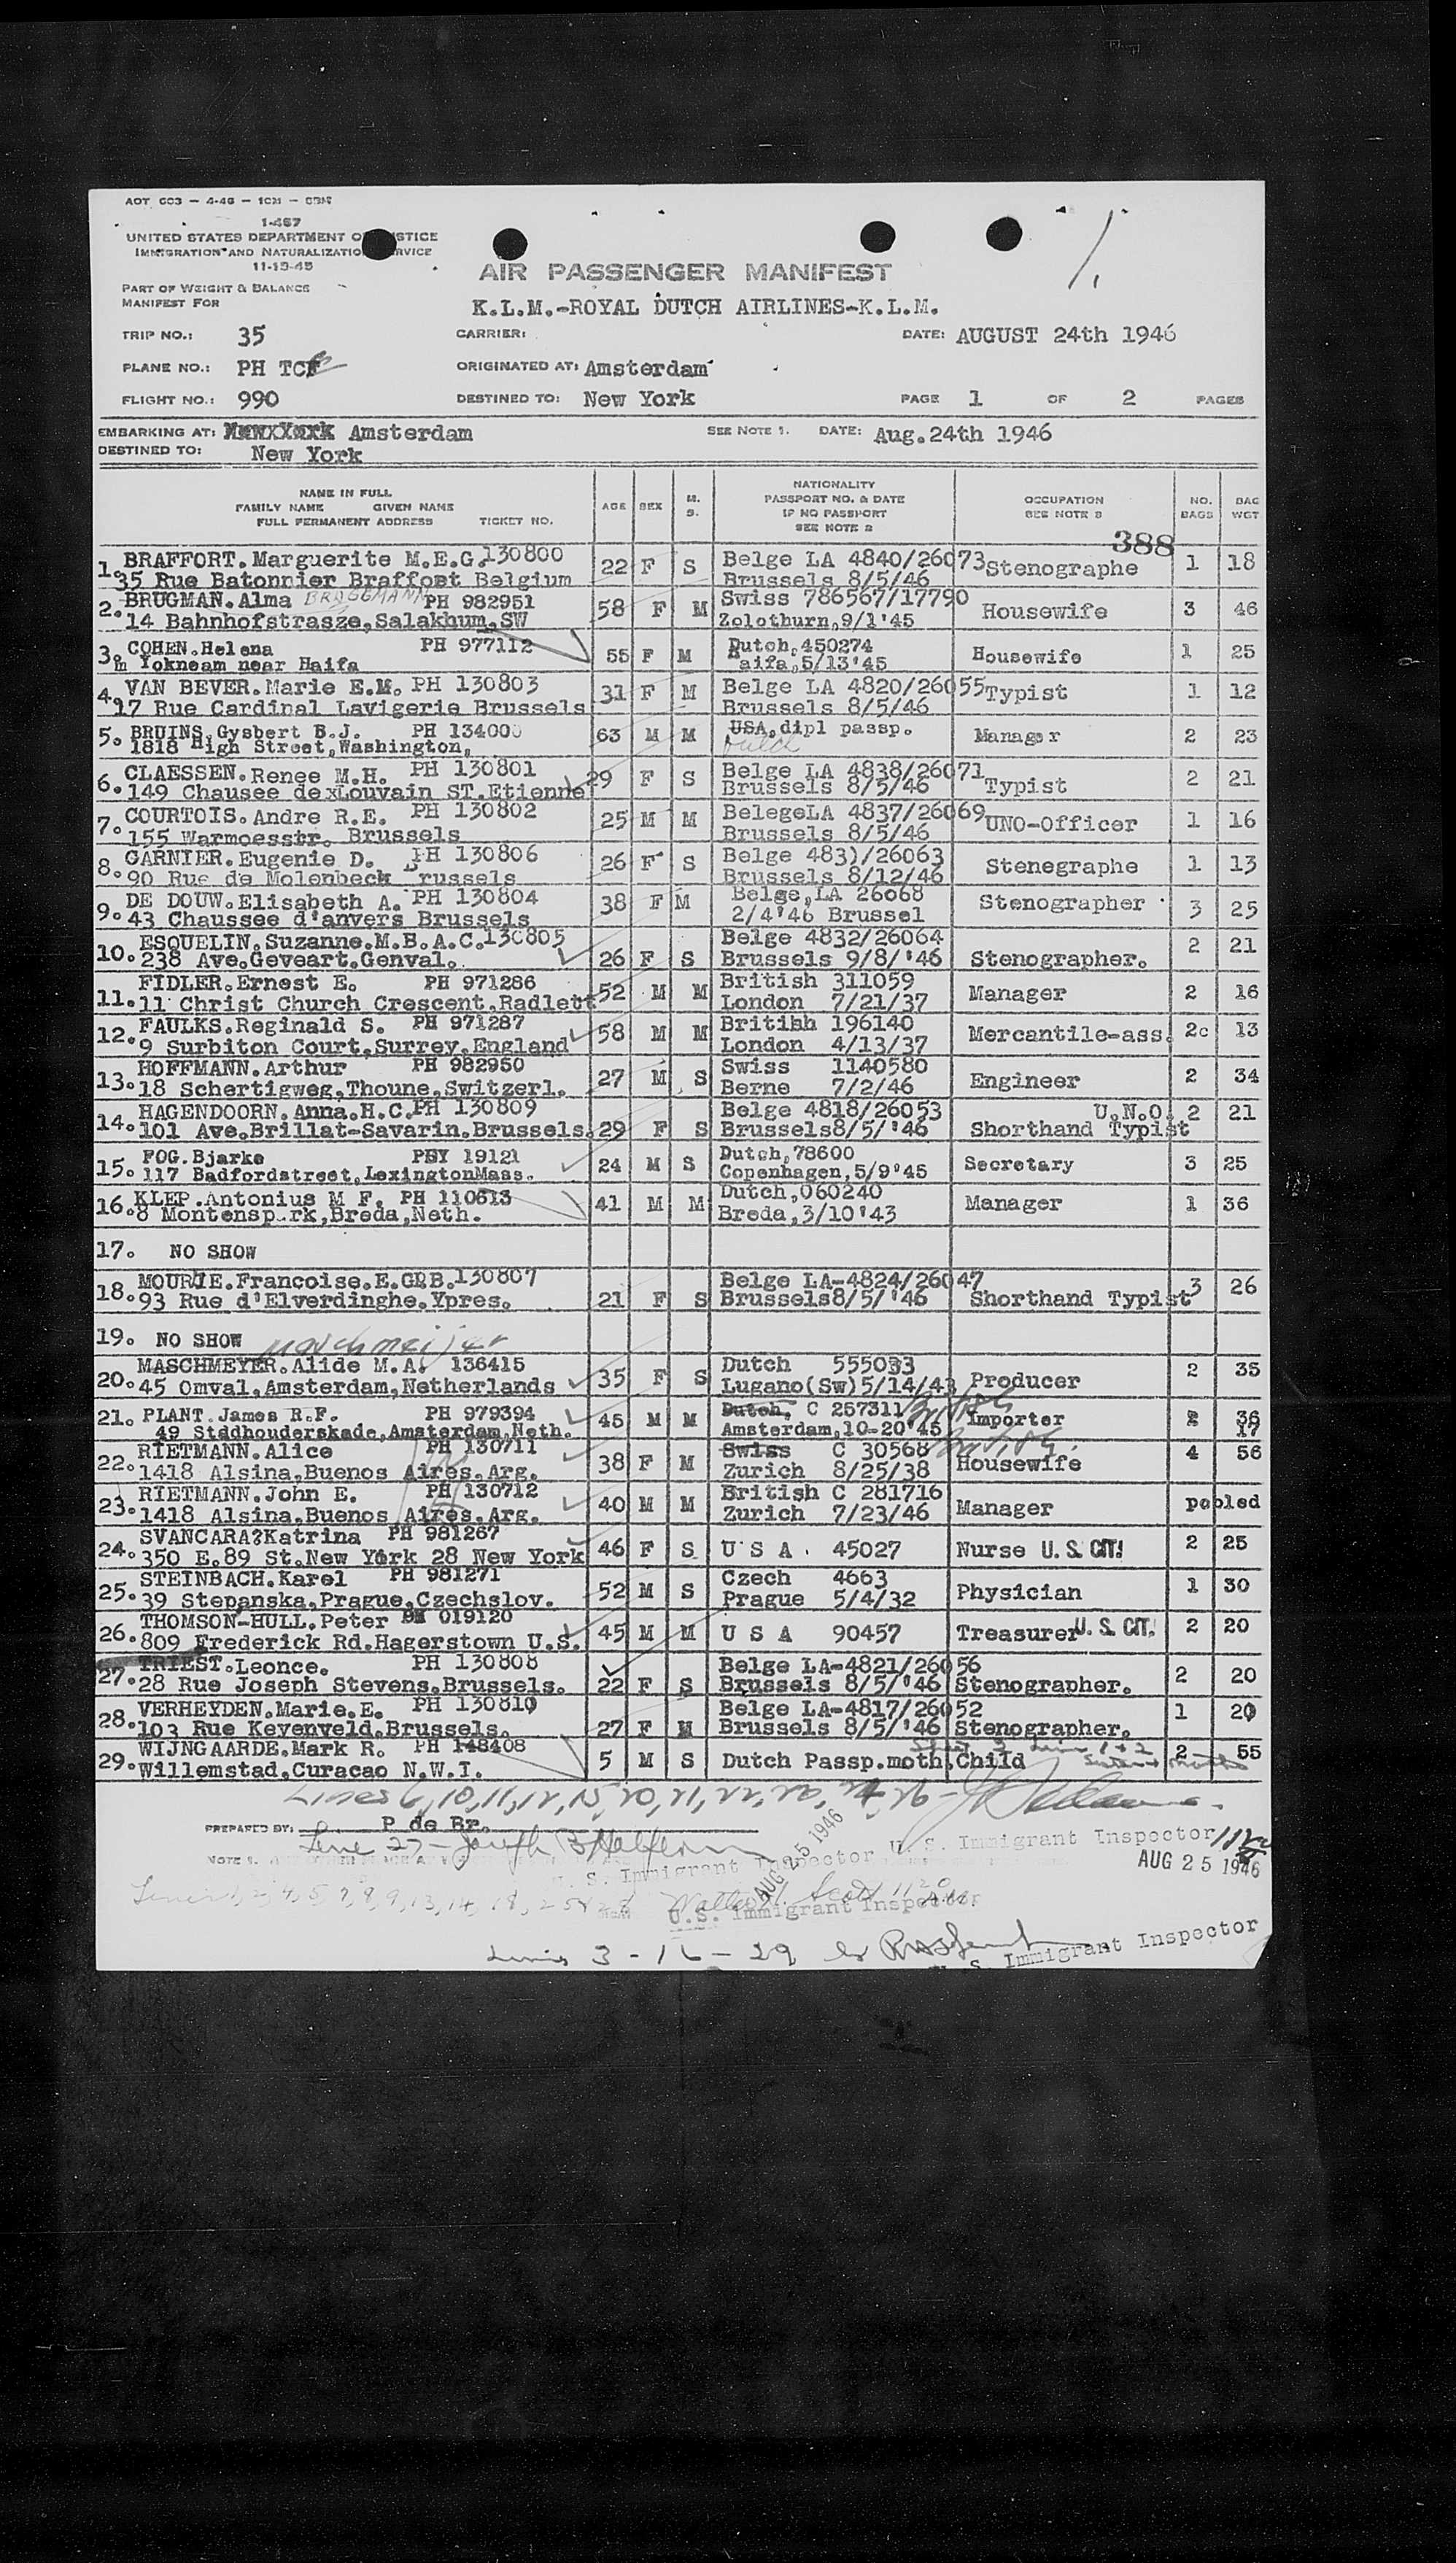 1.
I-467
UNITED STATES DEPARTMENT OF JUSTICE
IMMIGRATION AND NATURALIZATION SERVICE
11-15-45
AIR PASSENGER MANIFEST
PART OF WEIGHT & BALANCE
MANIFEST FOR
K.L.M.-ROYAL DUTCH AIRLINES-K.L.M.
TRIP NO.: 35 CARRIER: DATE: AUGUST 24th 1946
PLANE NO.: PH TCF ORIGINATED AT: Amsterdam
FLIGHT NO.: 990 DESTINED TO: New York PAGE 1 OF 2 PAGES
EMBARKING AT: Amsterdam SEE NOTE 1. DATE: Aug.24th 1946
DESTINED TO: New York
NAME IN FULL
FAMILY NAME GIVEN NAME
FULL PERMANENT ADDRESS TICKET NO.
AGE SEX M. S.
NATIONALITY
PASSPORT NO. & DATE
IF NO PASSPORT
SEE NOTE 2
OCCUPATION
SEE NOTE 3
NO. BAGS BAG WGT
388
1. BRAFFORT.Marguerite M.E.G.130800 22 F S Belge LA 4840/26073 Stenographe 1 18
35 Rue Batonnier Braffort Belgium Brussels 8/5/46
2. BRUGMAN.Alma BRÜGGMANN PH 982951 58 F M Swiss 786567/17790 Housewife 3 46
14 Bahnhofstrasze,Salakhum,SW Zolothurn,9/1'45
3. COHEN.Helena PH 977112 55 F M Dutch,450274 Housewife 1 25
m Yokneam near Haifa Haifa,5/13'45
4. VAN BEVER.Marie E.M. PH 130803 31 F M Belge LA 4820/26055 Typist 1 12
17 Rue Cardinal Lavigerie Brussels Brussels 8/5/46
5. BRUINS.Gysbert B.J. PH 134000 63 M M USA,dipl passp. Manager 2 23
1818 High Street,Washington, Dutch
6. CLAESSEN.Renee M.H. PH 130801 29 F S Belge LA 4838/26071 Typist 2 21
149 Chausee dexLouvain ST.Etienne Brussels 8/5/46
7. COURTOIS.Andre R.E. PH 130802 25 M M BelegeLA 4837/26069 UNO-Officer 1 16
155 Warmoesstr. Brussels Brussels 8/5/46
8. GARNIER.Eugenie D. PH 130806 26 F S Belge 483)/26063 Stenegraphe 1 13
90 Rue de Molenbeck Brussels Brussels 8/12/46
9. DE DOUW.Elisabeth A. PH 130804 38 F M Belge,LA 26068 Stenographer 3 25
43 Chaussee d'anvers Brussels 2/4'46 Brussel
10. ESQUELIN.Suzanne.M.B.A.C.130805 26 F S Belge 4832/26064 Stenographer. 2 21
238 Ave.Geveart.Genval. Brussels 9/8/'46
11. FIDLER.Ernest E. PH 971286 52 M M British 311059 Manager 2 16
11 Christ Church Crescent.Radlett London 7/21/37
12. FAULKS.Reginald S. PH 971287 58 M M Britihh 196140 Mercantile-ass. 2c 13
9 Surbiton Court,Surrey.England London 4/13/37
13. HOFFMANN.Arthur PH 982950 27 M S Swiss 1140580 Engineer 2 34
18 Schertigweg,Thoune,Switzerl. Berne 7/2/46
14. HAGENDOORN.Anna.H.C.PH 130809 29 F S Belge 4818/26053 U.N.O. 2 21
101 Ave.Brillat-Savarin.Brussels. Brussels8/5/'46 Shorthand Typist
15. FOG.Bjarke PHY 19121 24 M S Dutch,78600 Secretary 3 25
117 Badfordstreet,LexingtonMass. Copenhagen,5/9'45
16. KLEP.Antonius M F. PH 110613 41 M M Dutch,060240 Manager 1 36
8 Montenspark,Breda,Neth. Breda,3/10'43
17. NO SHOW
18. MOURUE.Francoise.E.G.B.130807 21 F S Belge LA-4824/26047 Shorthand Typist 3 26
93 Rue d'Elverdinghe.Ypres. Brussels8/5/'46
19. NO SHOW
Maschmeijer
20. MASCHMEYER.Alide M.A. 136415 35 F S Dutch 555033 Producer 2 35
45 Omval,Amsterdam,Netherlands Lugano(Sw)5/14/43
21. PLANT.James R.F. PH 979394 45 M M Dutch, C 257311 British Importer 36
49 Stadhouderskade,Amsterdam,Neth. Amsterdam,10-20'45 17
22. RIETMANN.Alice PH 130711 38 F M Swiss C 30568 British Housewife 4 56
1418 Alsina,Buenos Aires.Arg. Zurich 8/25/38
23. RIETMANN.John E. PH 130712 40 M M British C 281716 Manager pooled
1418 Alsina,Buenos Aires.Arg. Zurich 7/23/46
24. SVANCARA?Katrina PH 981267 46 F S U S A . 45027 Nurse U.S. CIT. 2 25
350 E.89 St.New York 28 New York
25. STEINBACH.Karel PH 981271 52 M S Czech 4663 Physician 1 30
39 Stepanska,Prague,Czechslov. Prague 5/4/32
26. THOMSON-HULL.Peter PH 019120 45 M M U S A 90457 Treasurer U.S. CIT. 2 20
809 Frederick Rd.Hagerstown U.S.
27. TRIEST.Leonce. PH 130808 22 F S Belge LA-4821/26056 Stenographer. 2 20
28 Rue Joseph Stevens.Brussels. Brussels 8/5/'46
28. VERHEYDEN.Marie.E. PH 130810 27 F M Belge LA-4817/26052 Stenographer. 1 20
103 Rue Keyenveld.Brussels. Brussels 8/5/'46
29. WIJNGAARDE.Mark R. PH 148408 5 M S Dutch Passp.moth. Child 2 55
Willemstad,Curacao N.W.I.
PREPARED BY: P de Br.
Line 27 - Joseph B Halfern
U. S. Immigrant Inspector
U. S. Immigrant Inspector
AUG 25 1946
AUG 25 1946
U.S. Immigrant Inspector
Lines 3 - 16 - 29
U. S. Immigrant Inspector